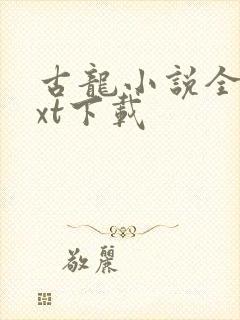 古龍小説全
xt下載
敬麗